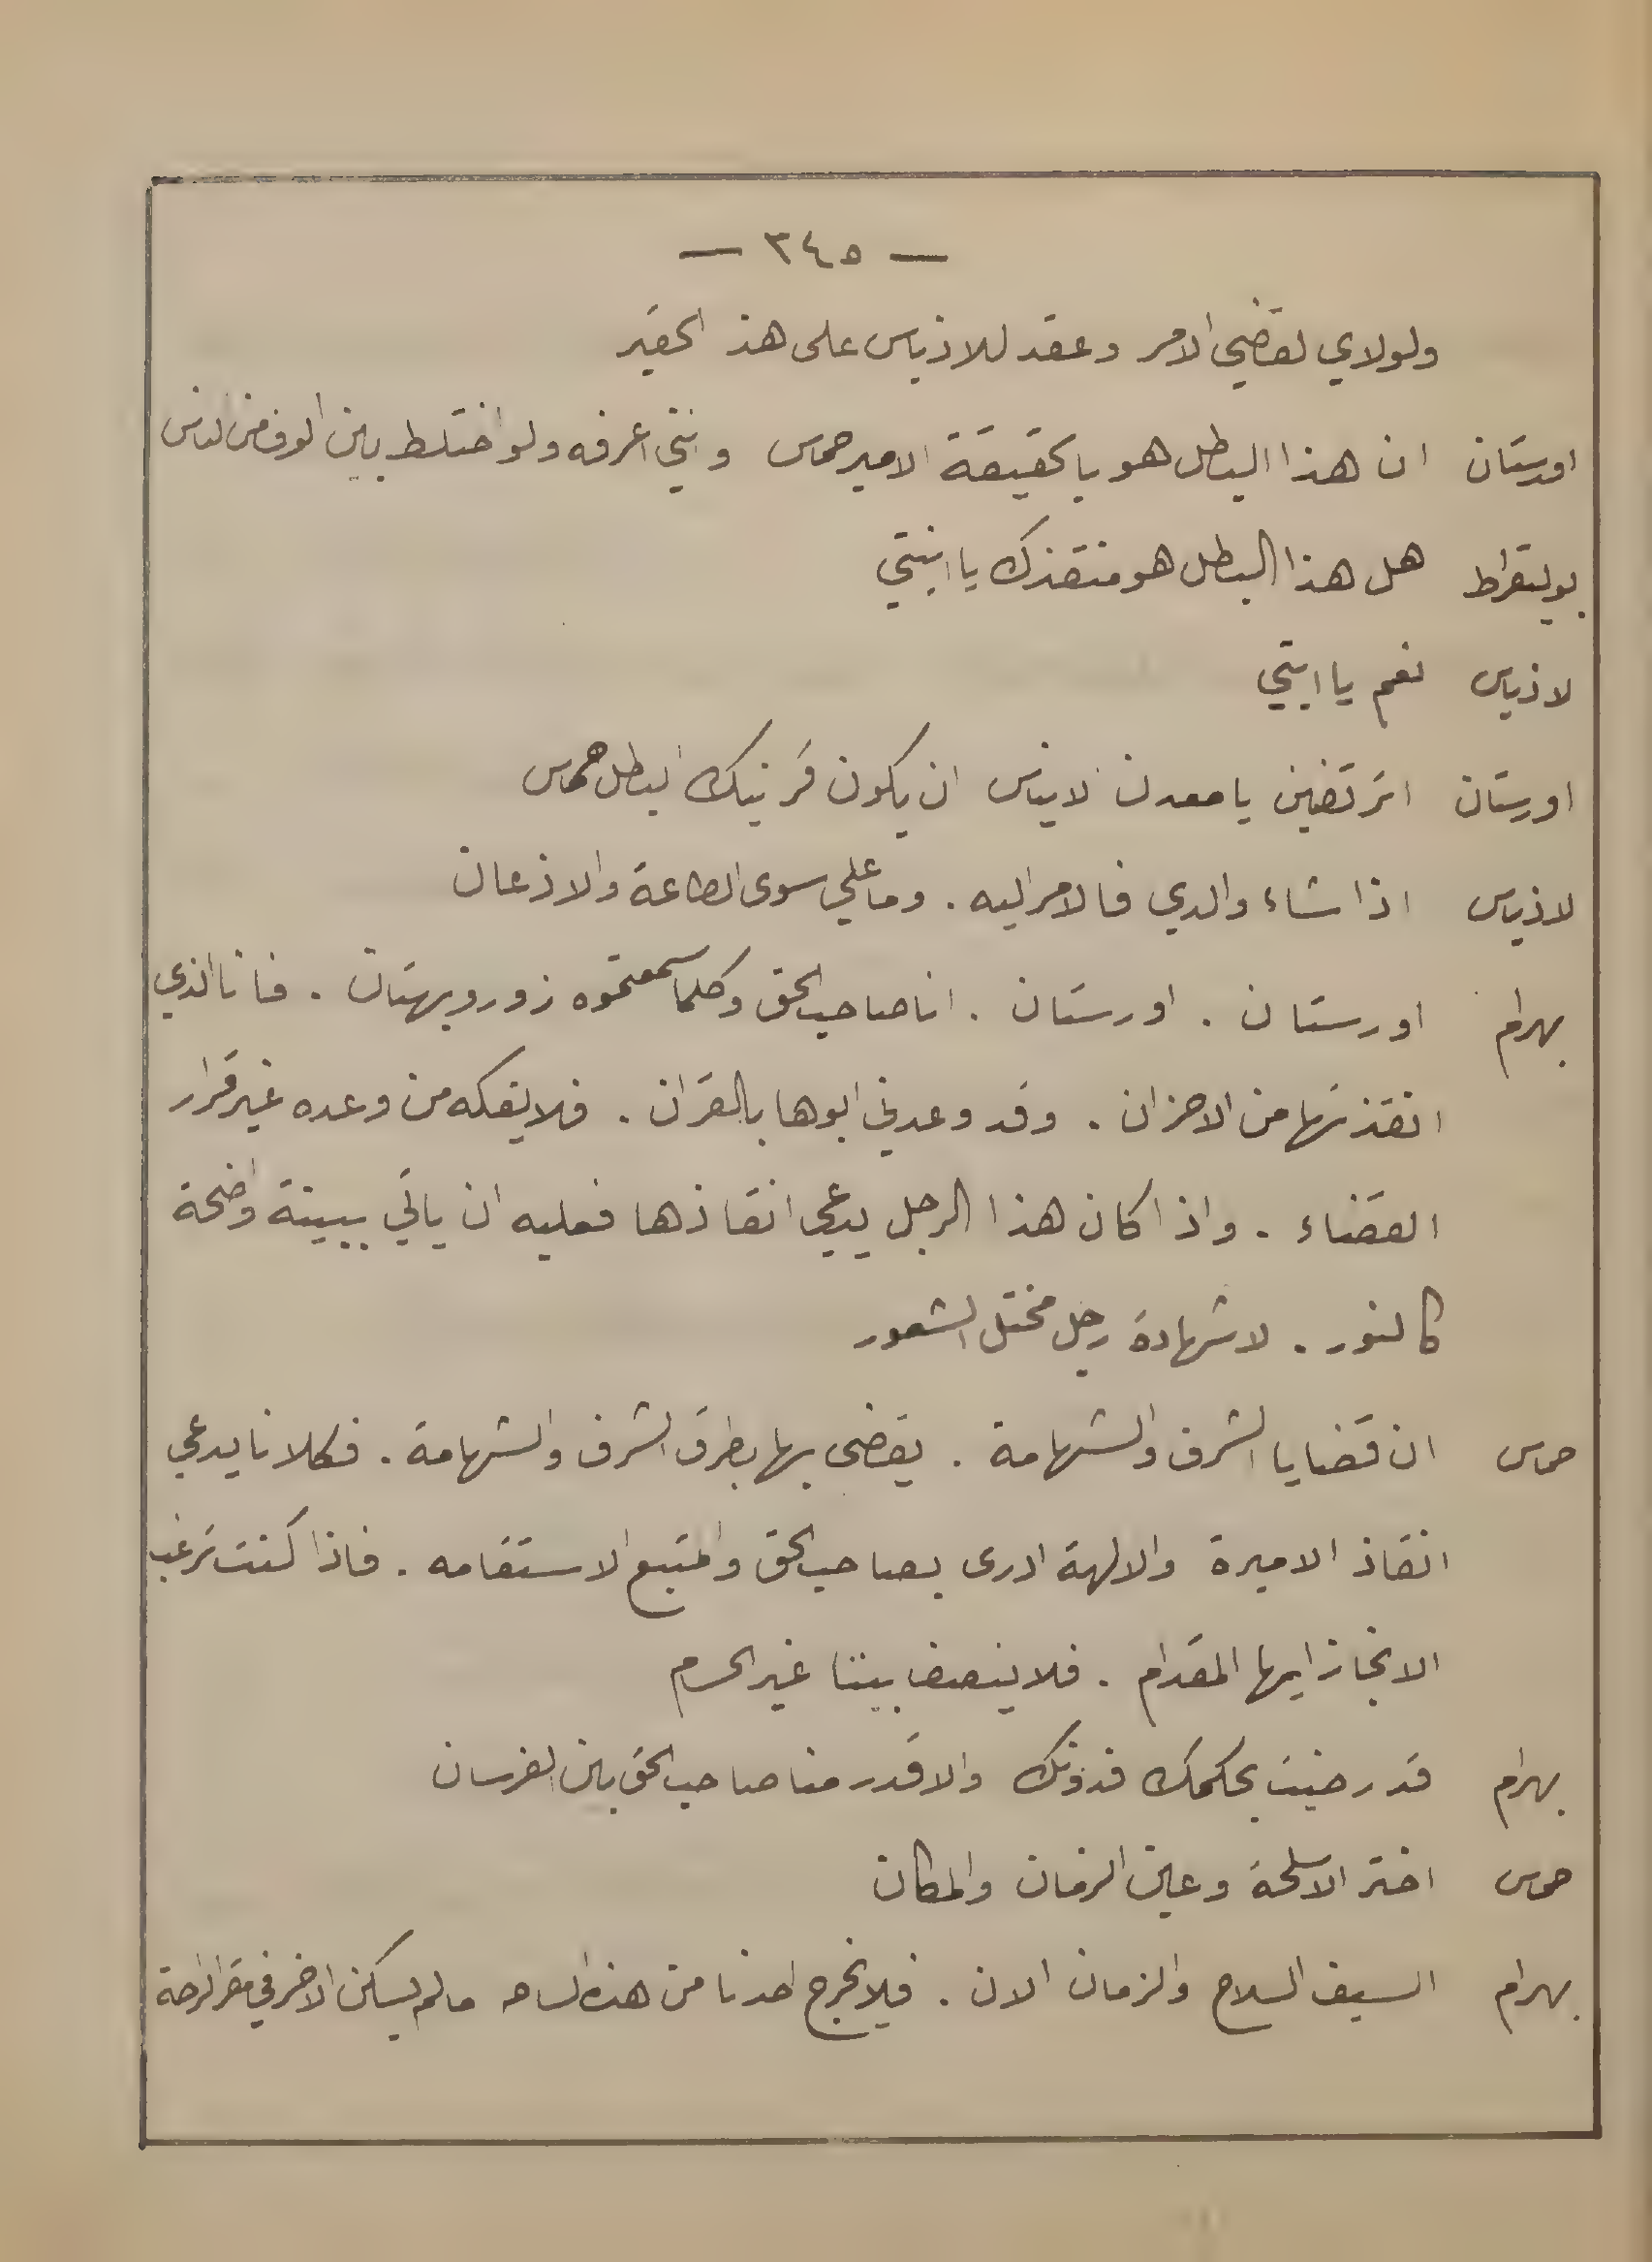 — ٣٤٥ —
ولولاي لقضي الامر وعقد للاذياس على هذ الحقير
اورستان ان هذا البطل هو بالحقيقة الامير حماس وانني اعرفه ولو اختلط بين الوف من الناس
بوليقراط هل هذا البطل هو منقذك يا ابنتي
لاذياس نعم يا ابتي
اورستان اترتضين يا معدن الايناس ان يكون قرينك البطل حماس
لاذياس اذا شاء والدي فالامر اليه . وما علي سوى الطاعة والاذعان
بهرام اورستان . اورستان . انا صاحب الحق وكلما سمعتموه زور وبهتان . فانا الذي
انقذتها من الاحزان . وقد وعدني ابوها بالقران . فلا يفكه من وعده غير قرار
القضاء . واذا كان هذا الرجل يدعي انقاذها فعليه ان ياتي ببينة واضحة
كالنور . لا شهادة رجل مختل الشعور
حماس ان قضايا الشرف والشهامة . يقضى بها بطرق الشرف والشهامة . فكلانا يدعي
انقاذ الاميرة والالهة ادرى بصاحب الحق والمتبع الاستقامه . فاذا كنت ترغب
الانجاز ايها المقدام . فلا ينصف بيننا غير الحسام
بهرام قد رضيت بحكمك فدونك والاقدر منا صاحب الحق بين الفرسان
حماس اختر الاسلحة وعين الزمان والمكان
بهرام السيف السلاح والزمان الان . فلا يخرج احدنا من هذه الساحه ما لم يسكن الاخر في مقر الراحة